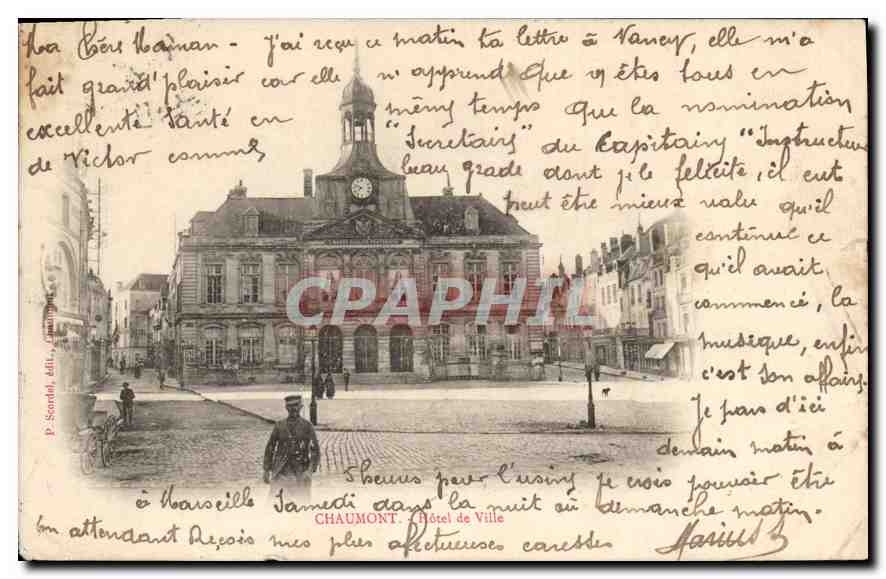 Ma Chère Maman - J'ai reçu ce matin ta lettre à Nancy, elle m'a
fait grand'plaisir car elle m'apprend que vs êtes tous en
excellente santé en même temps que la nomination
de Victor comme "Secrétaire" du Capitaine "Instructeur
beau grade dont je le félicite, il eut
peut être mieux valu qu'il
continue ce
qu'il avait
commencé, la
musique, enfin
c'est son affaire.
Je pars d'ici
demain matin à
5 heures pour l'usine je crois pouvoir être
à Marseille Samedi dans la nuit où dimanche matin.
En attendant Reçois mes plus affectueuses caresses
Marius
LIBERTÉ ÉGALITÉ FRATERNITÉ
CPARAMA
CHAUMONT. - Hôtel de Ville
P. Scordel, édit., Chaumont